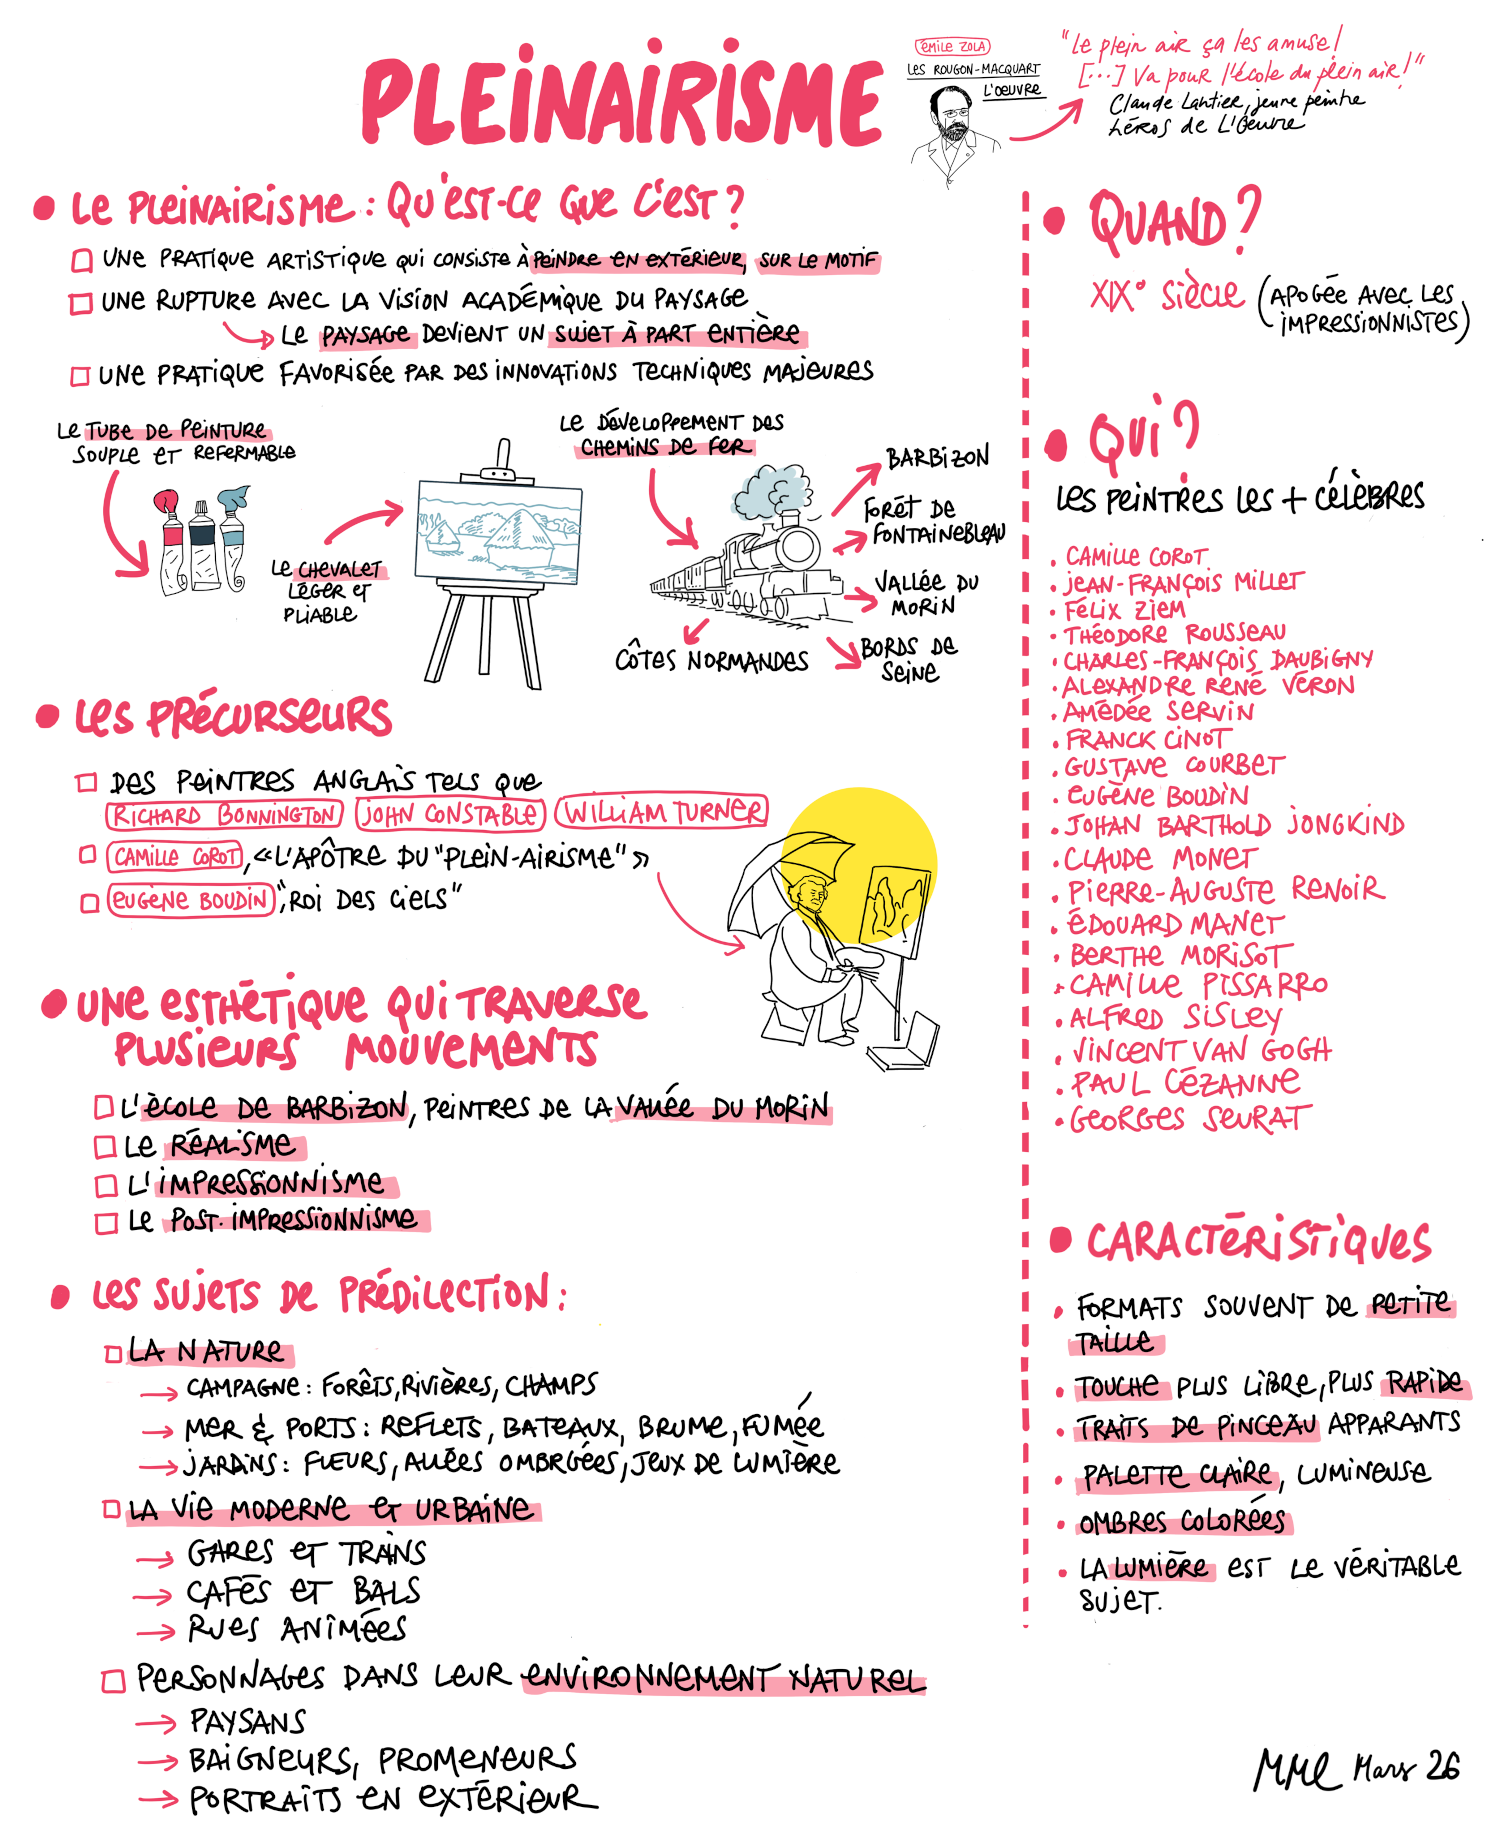 PLEINAIRISME
ÉMILE ZOLA
LES ROUGON-MACQUART
L'OEUVRE
"Le plein air ça les amuse!
[...] Va pour l'école du plein air!"
Claude Lantier, jeune peintre
héros de L'Oeuvre
• LE PLEINAIRISME : QU'EST-CE QUE C'EST ?
UNE PRATIQUE ARTISTIQUE QUI CONSISTE À PEINDRE EN EXTÉRIEUR, SUR LE MOTIF
UNE RUPTURE AVEC LA VISION ACADÉMIQUE DU PAYSAGE
LE PAYSAGE DEVIENT UN SUJET À PART ENTIÈRE
UNE PRATIQUE FAVORISÉE PAR DES INNOVATIONS TECHNIQUES MAJEURES
LE TUBE DE PEINTURE
SOUPLE ET REFERMABLE
LE CHEVALET
LÉGER ET
PLIABLE
LE DÉVELOPPEMENT DES
CHEMINS DE FER
BARBIZON
FORÊT DE
FONTAINEBLEAU
VALLÉE DU
MORIN
BORDS DE
SEINE
CÔTES NORMANDES
• LES PRÉCURSEURS
DES PEINTRES ANGLAIS TELS QUE
RICHARD BONNINGTON JOHN CONSTABLE WILLIAM TURNER
CAMILLE COROT, «L'APÔTRE DU "PLEIN-AIRISME"»
EUGÈNE BOUDIN, "ROI DES CIELS"
• UNE ESTHÉTIQUE QUI TRAVERSE
PLUSIEURS MOUVEMENTS
L'ÈCOLE DE BARBIZON, PEINTRES DE LA VALLÉE DU MORIN
LE RÉALISME
L'IMPRESSIONNISME
LE POST-IMPRESSIONNISME
• LES SUJETS DE PRÉDILECTION :
LA NATURE
→ CAMPAGNE : FORÊTS, RIVIÈRES, CHAMPS
→ MER & PORTS : REFLETS, BATEAUX, BRUME, FUMÉE
→ JARDINS : FLEURS, ALLÉES OMBRGÉES, JEUX DE LUMIÈRE
LA VIE MODERNE ET URBAINE
→ GARES ET TRAINS
→ CAFÉS ET BALS
→ RUES ANIMÉES
PERSONNAGES DANS LEUR ENVIRONNEMENT NATUREL
→ PAYSANS
→ BAIGNEURS, PROMENEURS
→ PORTRAITS EN EXTÉRIEUR
• QUAND ?
XIX° SIÈCLE (APOGÉE AVEC LES
IMPRESSIONNISTES)
• QUI ?
LES PEINTRES LES + CÉLÈBRES
• CAMILLE COROT
• JEAN-FRANÇOIS MILLET
• FÉLIX ZIEM
• THÉODORE ROUSSEAU
• CHARLES-FRANÇOIS DAUBIGNY
• ALEXANDRE RENÉ VÉRON
• AMÉDÉE SERVIN
• FRANCK CINOT
• GUSTAVE COURBET
• EUGÈNE BOUDIN
• JOHAN BARTHOLD JONGKIND
• CLAUDE MONET
• PIERRE-AUGUSTE RENOIR
• ÉDOUARD MANET
• BERTHE MORISOT
• CAMILLE PISSARRO
• ALFRED SISLEY
• VINCENT VAN GOGH
• PAUL CÉZANNE
• GEORGES SEURAT
• CARACTÉRISTIQUES
• FORMATS SOUVENT DE PETITE
TAILLE
• TOUCHE PLUS LIBRE, PLUS RAPIDE
• TRAITS DE PINCEAU APPARANTS
• PALETTE CLAIRE, LUMINEUSE
• OMBRES COLORÉES
• LA LUMIÈRE EST LE VÉRITABLE
SUJET.
MML Mars 26